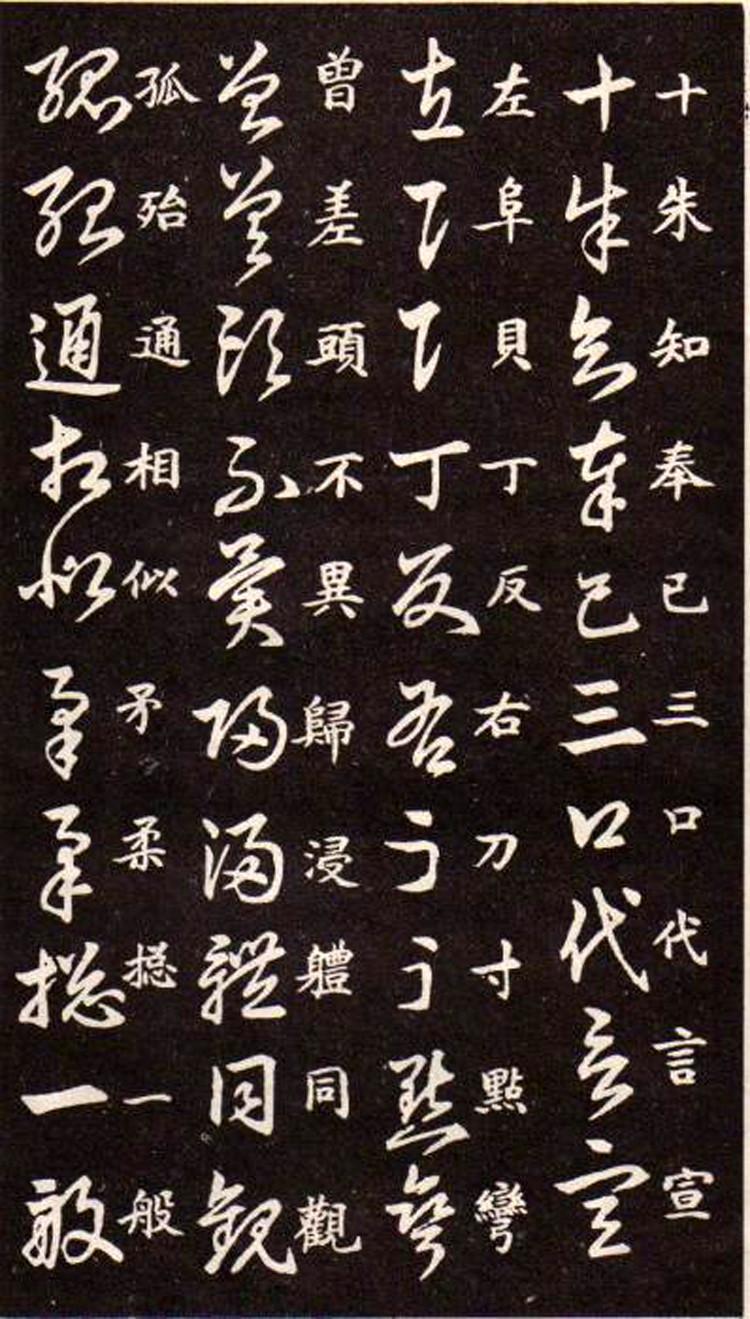 十朱知奉已三口代言宣
十朱知奉已三口代言宣
左阜貝丁反右刀寸點彎
左阜貝丁反右刀寸點彎
曾差頭不異歸浸體同觀
曾差頭不異歸浸體同觀
孤殆通相似矛柔摠一般
孤殆通相似矛柔摠一般